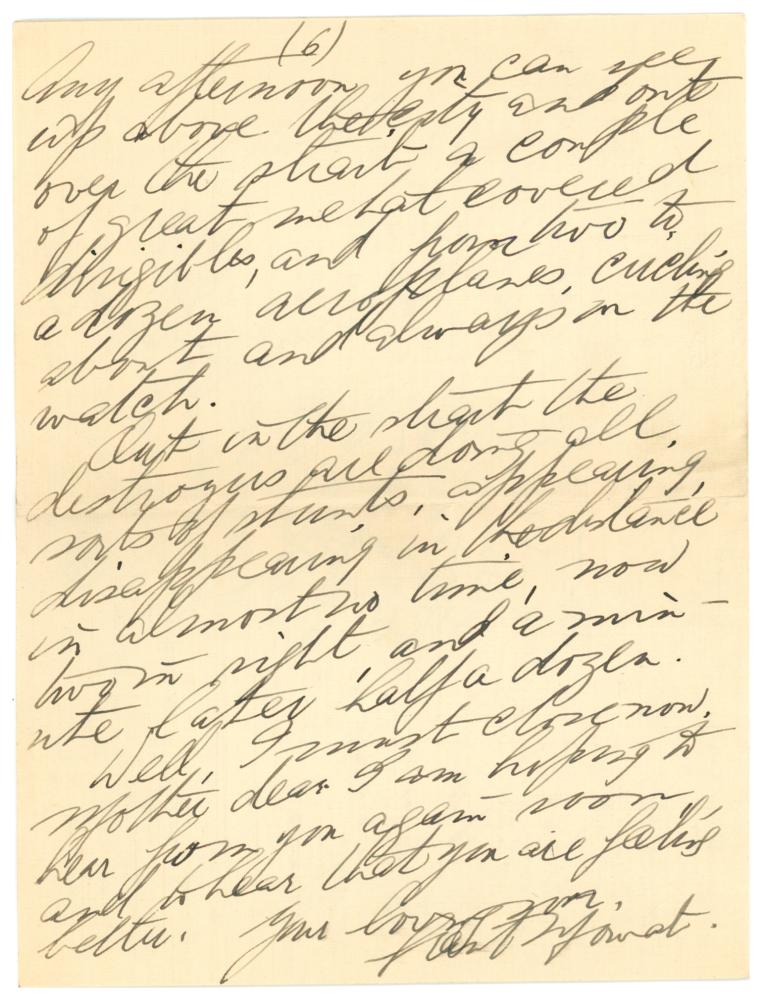 (6)
Any afternoon you can see,
up above the city and out
over the strait a couple
of great metal covered
dirigibles, and from two to
a dozen aeroplanes, circling
about and always on the
watch.
Out in the strait the
destroyers are doing all
sorts of stunts, appearing,
disappearing in the distance
in almost no time, now
two in sight, and a min-
ute later half a dozen.
Well, I must close now,
mother dear. I am hoping to
hear from you again soon,
and to hear that you are feeling
better. Your loving son,